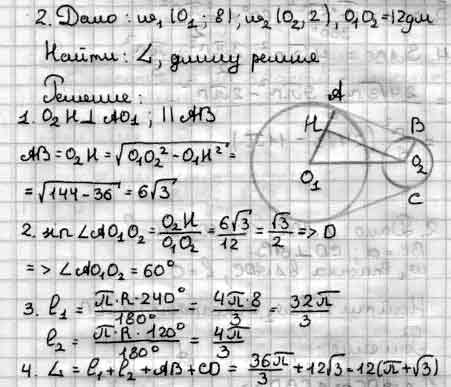 2. Дано: ω₁ (O₁; 8); ω₂ (O₂, 2), O₁O₂ = 12дм
Найти: L, длину ремня
Решение:
1. O₂H ⊥ AO₁; || AB
AB = O₂H = √(O₁O₂² - O₁H²) =
= √(144 - 36) = 6√3
2. sin ∠AO₁O₂ = O₂H/O₁O₂ = 6√3/12 = √3/2 =>
=> ∠AO₁O₂ = 60°
3. l₁ = π·R·240°/180° = 4π·8/3 = 32π/3
l₂ = π·R·120°/180° = 4π/3
4. L = l₁ + l₂ + AB + CD = 36π/3 + 12√3 = 12(π + √3)
A
H
B
O₁
O₂
C
D